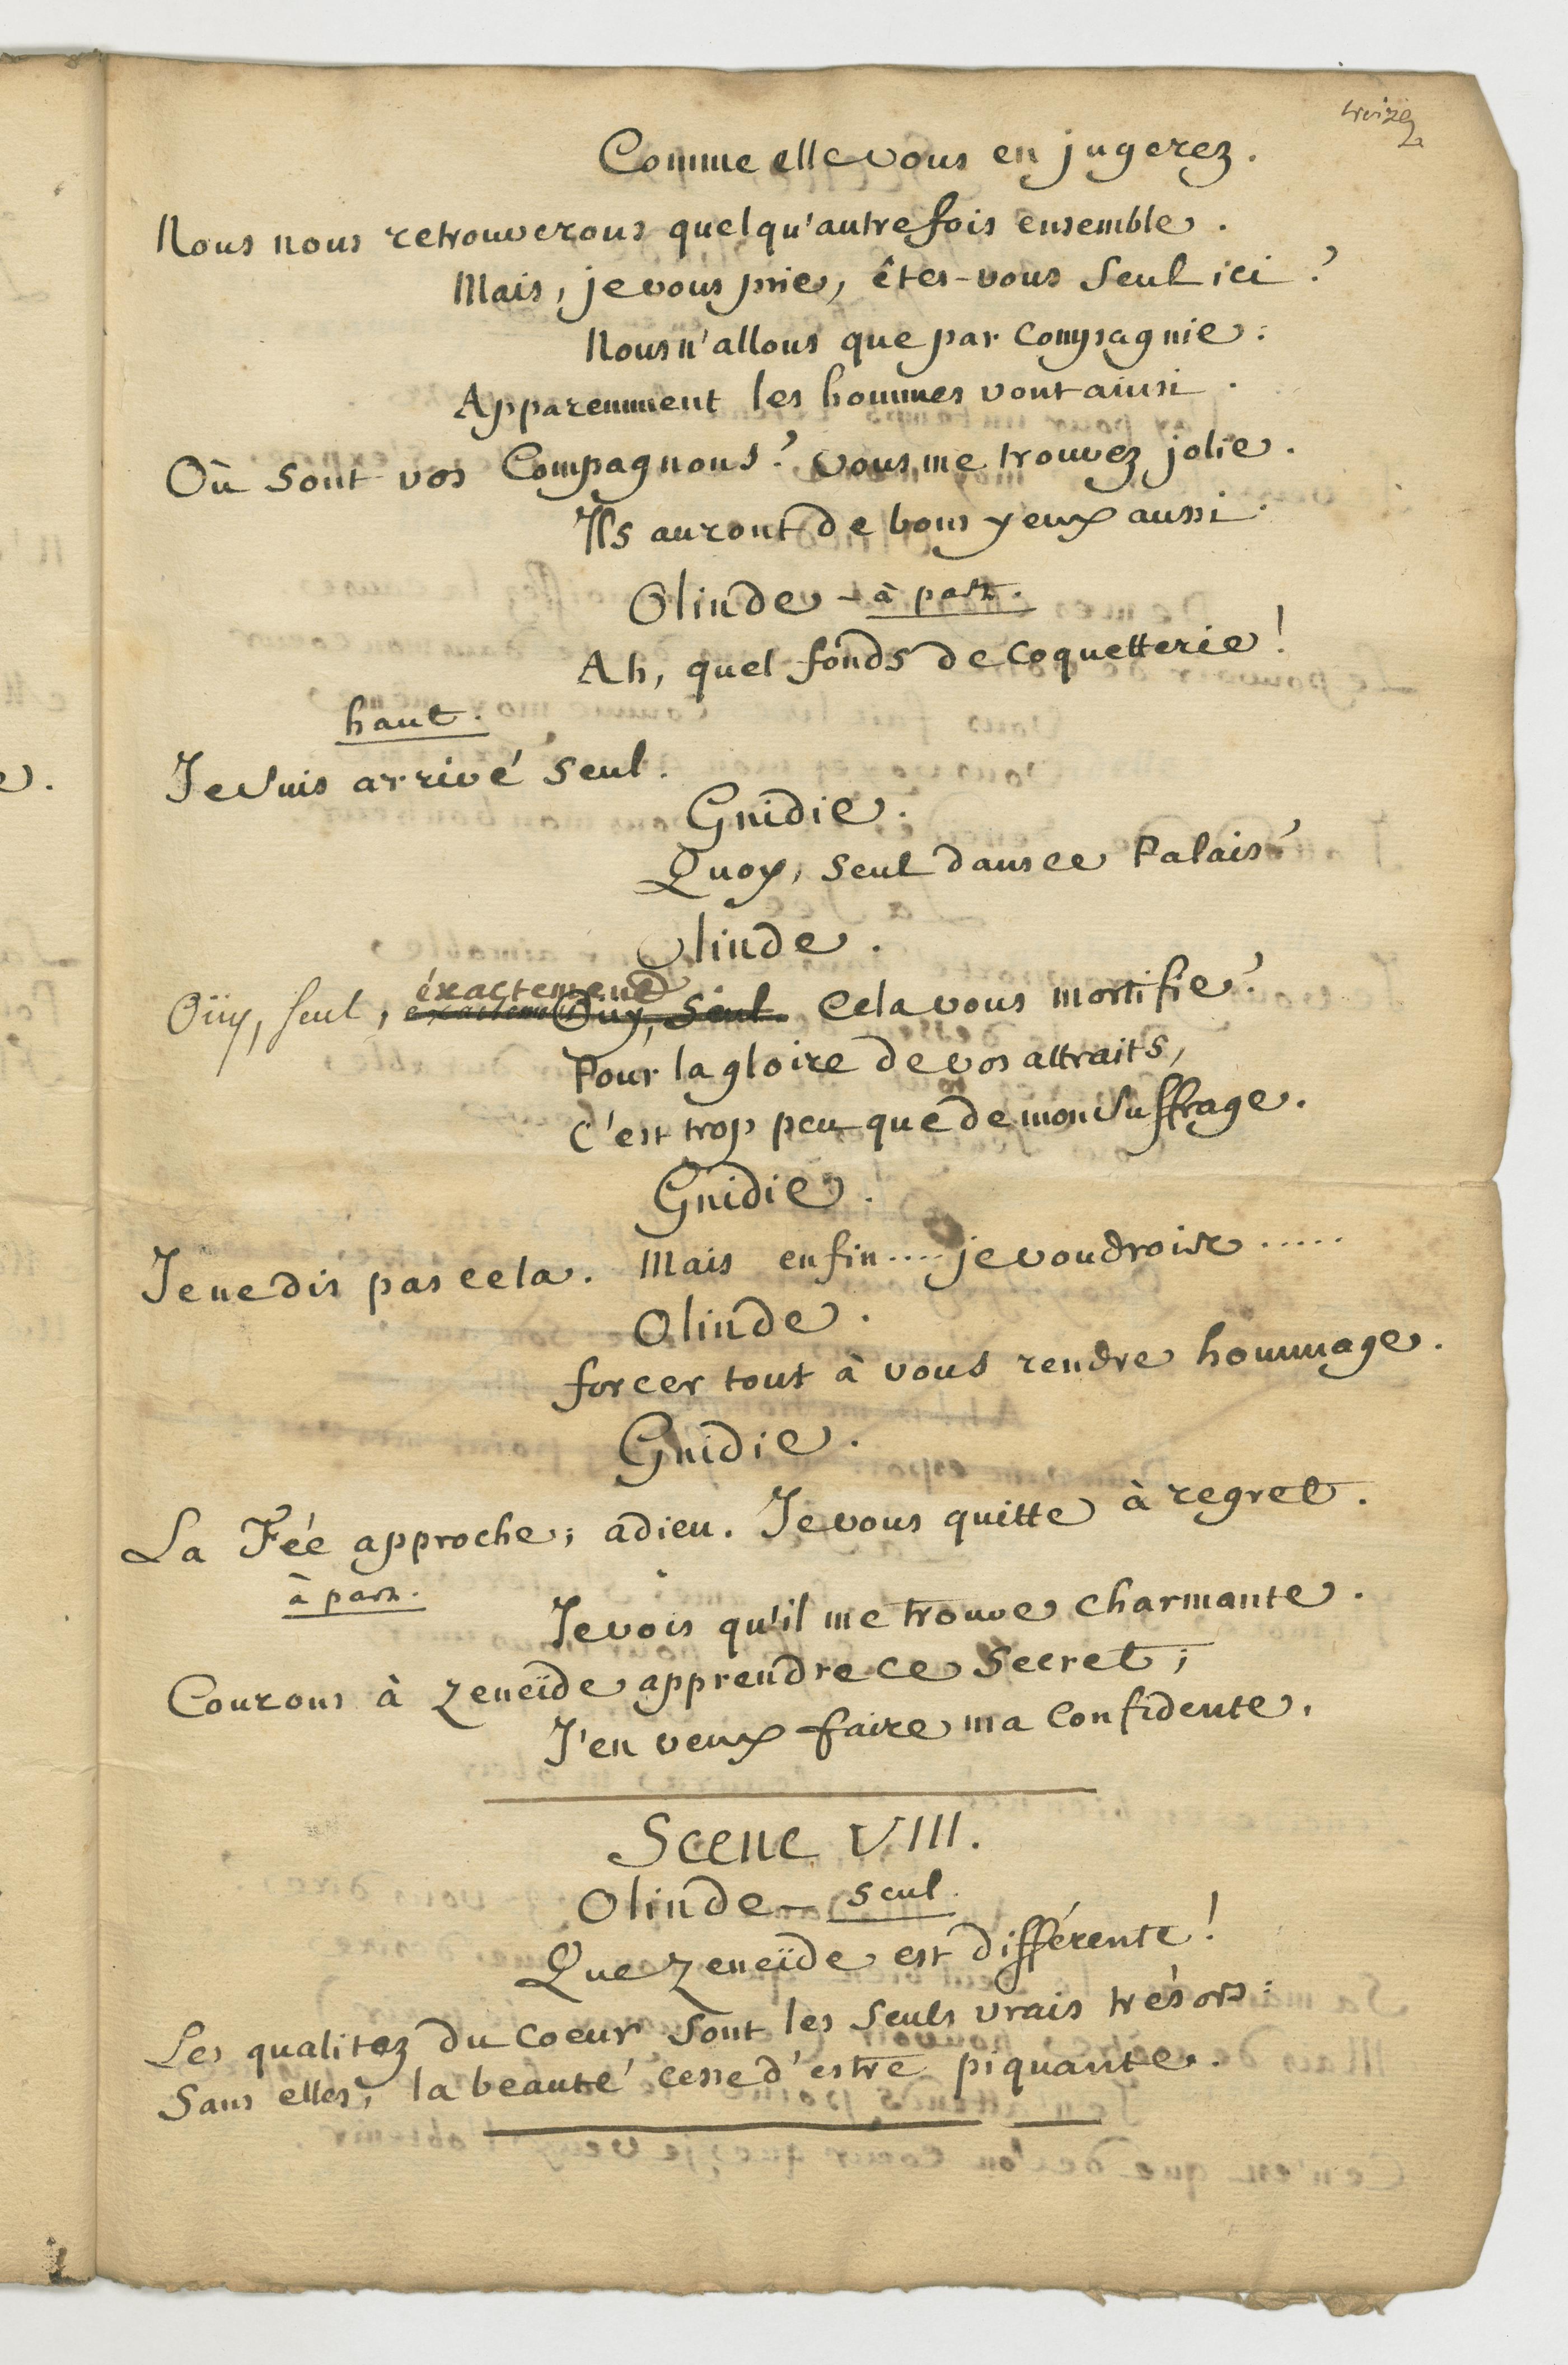 treize
Comme elle vous en jugerez.
Nous nous retrouverons quelqu'autre fois ensemble.
Mais, je vous prie, êtes-vous seul ici ?
Nous n'allons que par compagnie :
Apparemment les hommes vont ainsi.
Où sont vos Compagnons ? vous me trouvez jolie.
Ils auront de bons yeux aussi.
Olinde - à part.
Ah, quel fonds de coquetterie !
haut.
Je suis arrivé seul.
Gnidie.
Quoy, seul dans ce Palais ?
Olinde.
éxactement
Oüy, seul, exactement Ouy, seul. Cela vous mortifie ?
Pour la gloire de vos attraits,
C'est trop peu que de mon suffrage.
Gnidie.
Je ne dis pas cela. Mais enfin.... je voudrois .....
Olinde.
forcer tout à vous rendre hommage.
Gnidie.
La Fée approche ; adieu. Je vous quitte à regret.
à part.
Je vois qu'il me trouve charmante.
Courons à Zeneïde apprendre ce secret ;
J'en veux faire ma confidente.
Scene VIII.
Olinde - seul.
Que Zeneïde est différente !
Les qualitez du coeur sont les seuls vrais trésors :
Sans elles, la beauté cesse d'estre piquante.